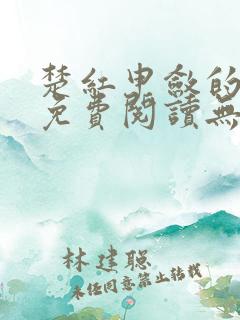 楚红申敘的
免費閱讀無
林建聪
未经同意禁止转载